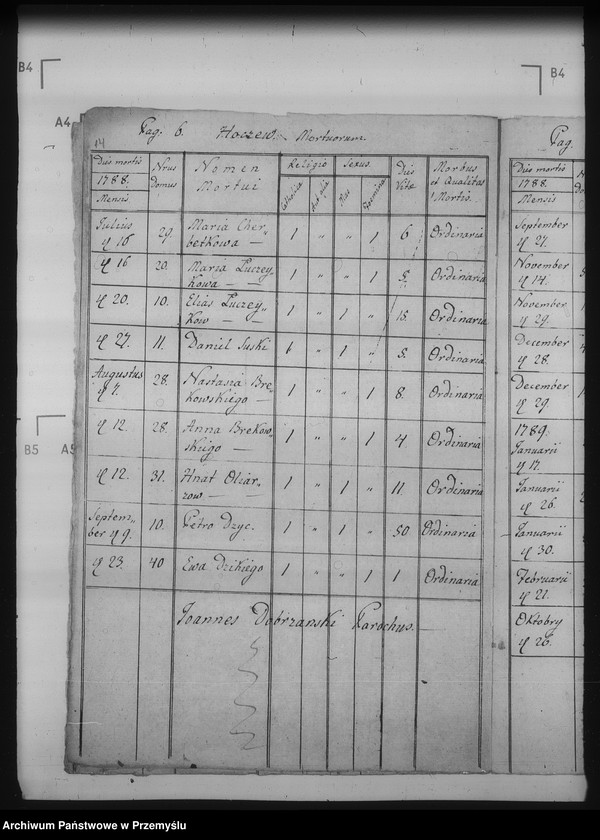 B4
B4
A4
B5
A5
14
Pag. 6. Hoczew. Mortuorum
Dies mortis
1788.
Mensis
Nrus
Domus
Nomen
Mortui
Religio
Catholica
Aut alia
Sexus.
Mas
Foemina
Dies
Vitæ
Morbus
et Qualitas
Mortis.
Julius
ɥ 16 29. Maria Cher„
betkowa — 1 „ „ 1 6 Ordinaria
ɥ 16 20. Maria Łuczey„
kowa — — 1 „ „ 1 5. Ordinaria
ɥ 20. 10. Elias Łuczey„
kow — — 1 „ 1 „ 18. Ordinaria
ɥ 27. 11. Daniel Suski 1 „ 1 „ 5. Ordinaria
Augustus
ɥ 7. 28. Nastasia Bre„
kowskiego — 1 „ „ 1 8. Ordinaria
ɥ 12. 28. Anna Brekow„
skiego — 1 „ „ 1 4. Ordinaria
ɥ 12. 31. Hnat Oliar„
zow — — 1 „ 1 „ 11. Ordinaria
Septem„
ber ɥ 9. 10. Petro Dzyc. 1 „ 1 „ 50 Ordinaria
ɥ 23. 40 Ewa Dzikiego 1 „ „ 1 1 Ordinaria
Joannes Dobrzanski Parochus.
Pag.
Dies mortis
1788.
Mensis
September
ɥ 27.
November
ɥ 14.
November
ɥ 29.
December
ɥ 28.
December
ɥ 29.
1789.
Januarii
ɥ 17.
Januarii
ɥ 26.
Januarii
ɥ 30.
Februarii
ɥ 21.
Oktobry
ɥ 26.
Archiwum Państwowe w Przemyślu